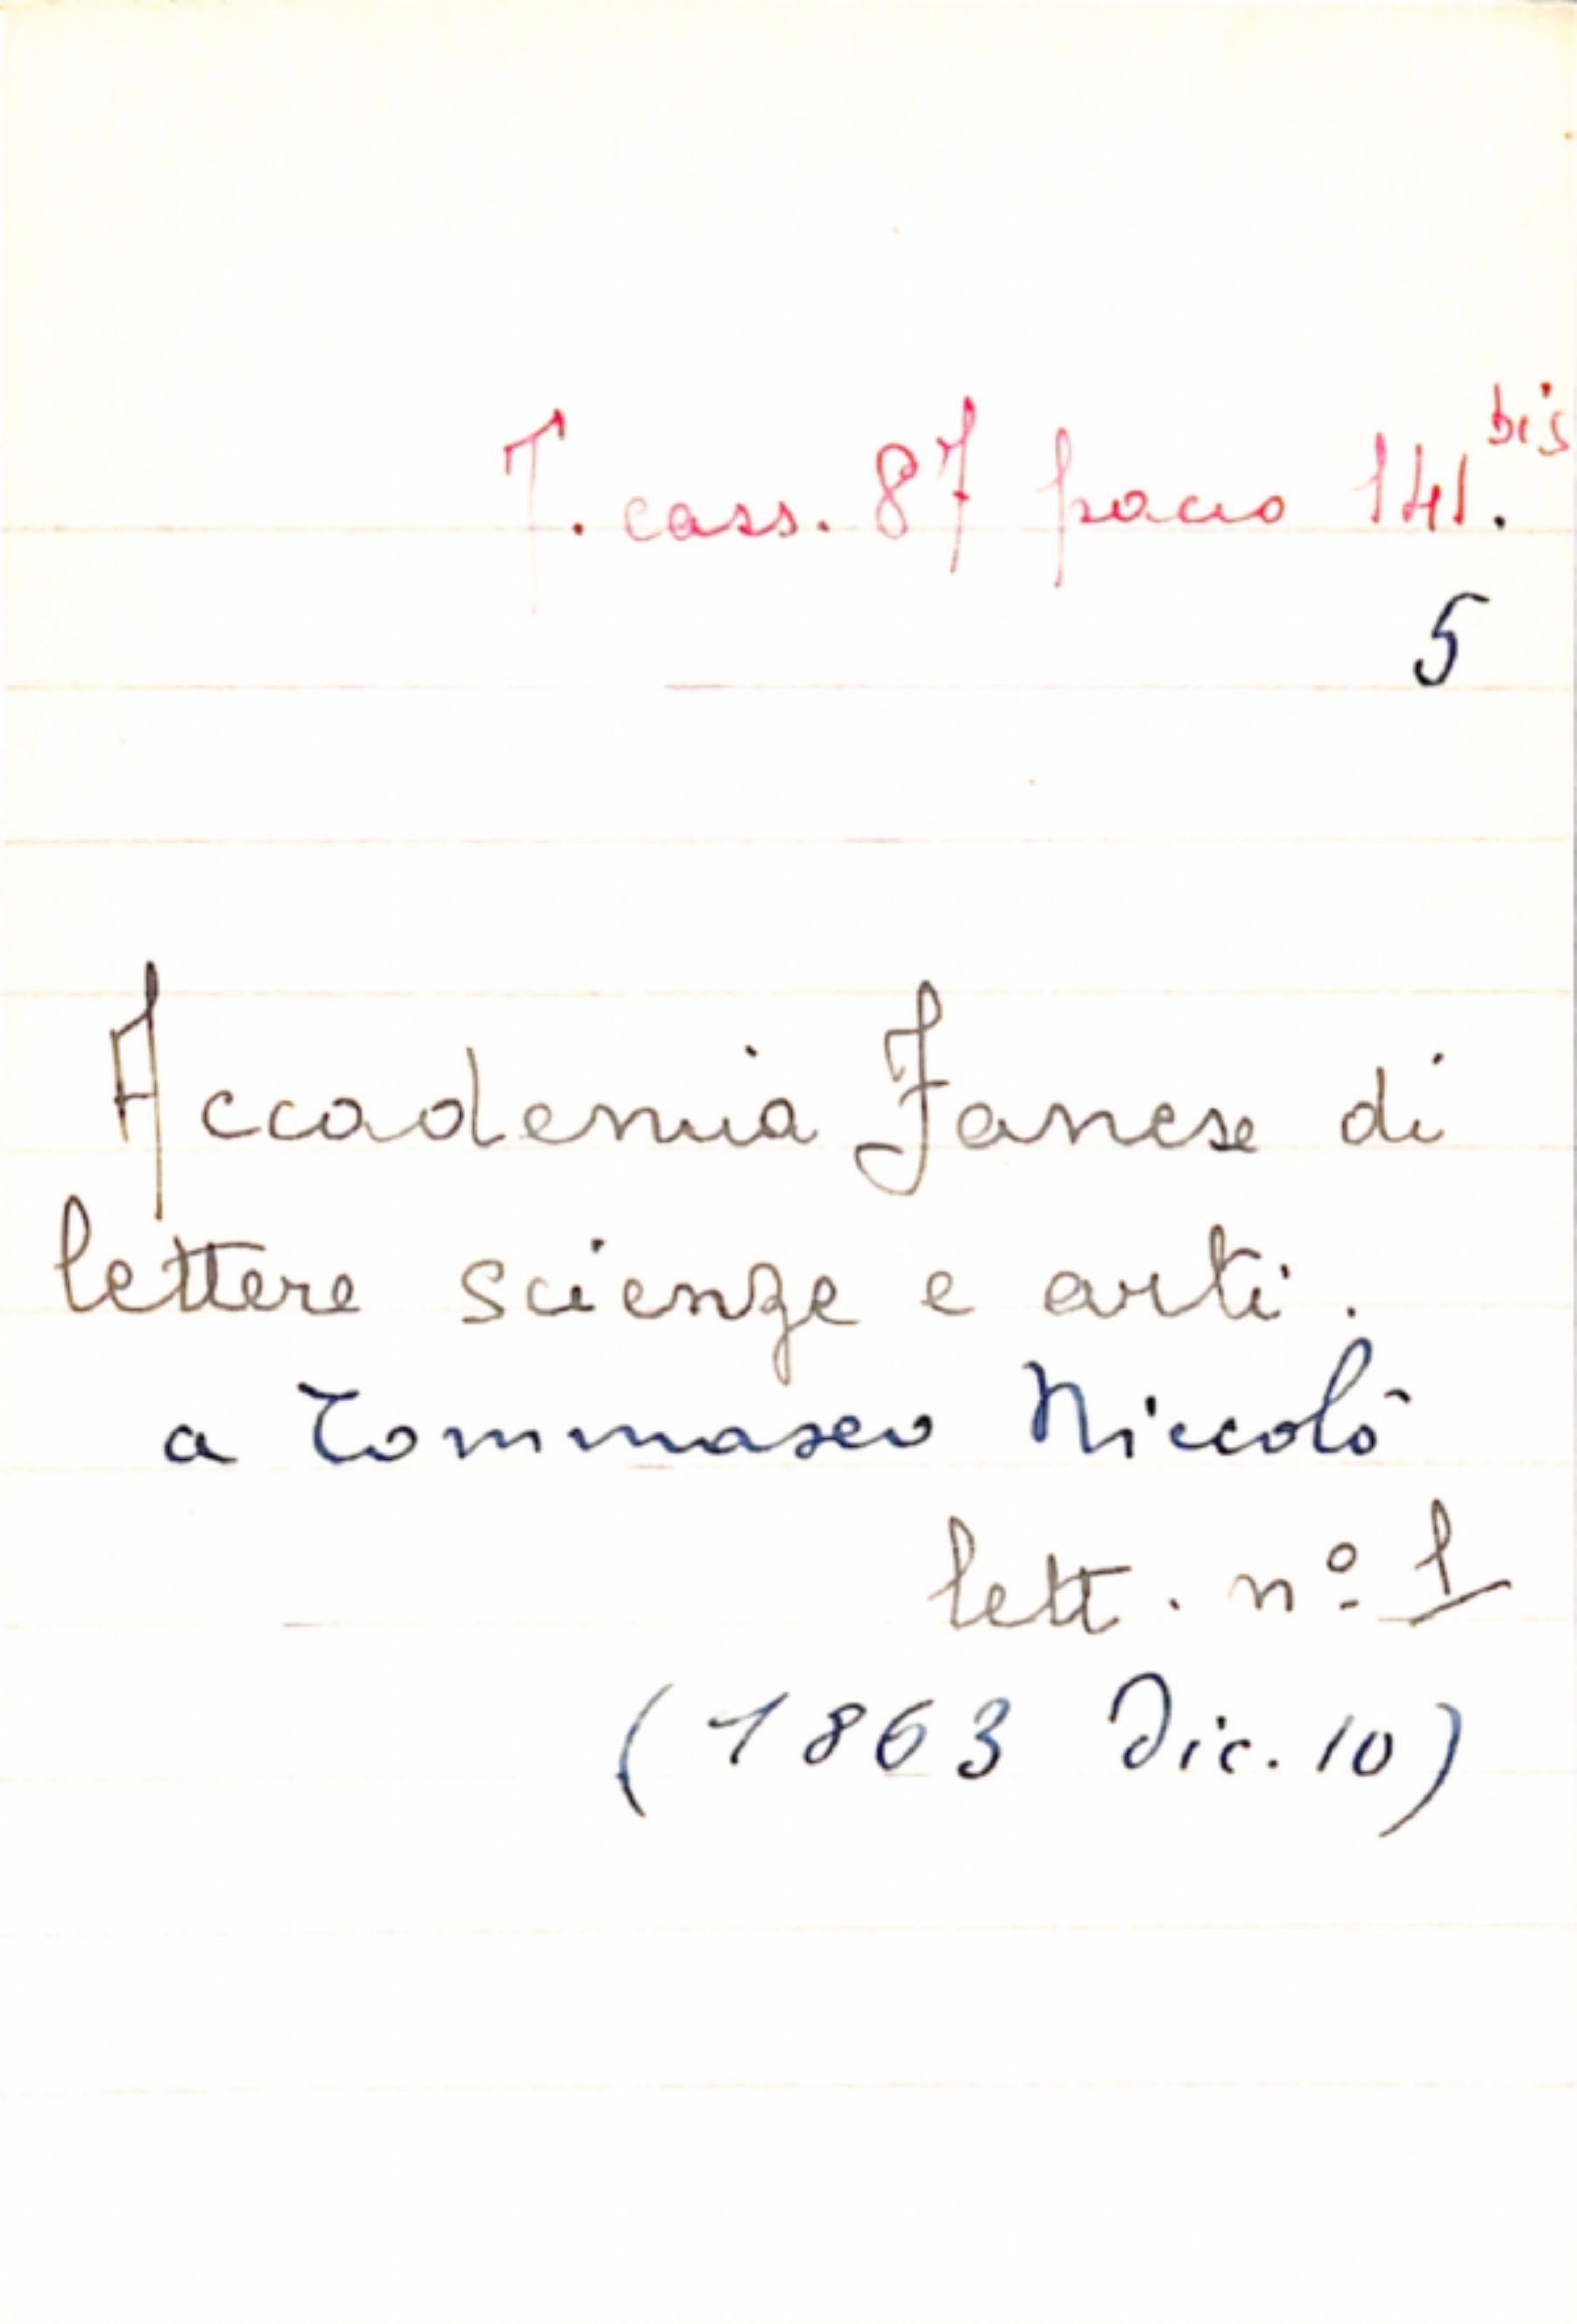 T. cass. 87 pacco 141. bis
5
Accademia Fanese di
lettere scienze e arti.
a Tommaseo Niccolò
lett. nº 1
(1863 Dic. 10)